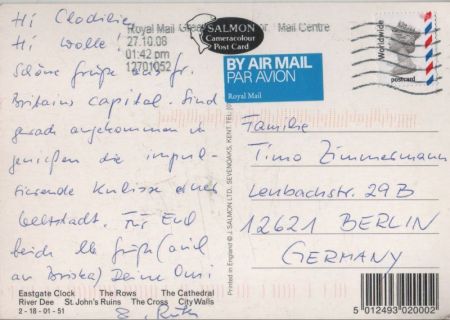 Hi Clodilie,
Hi Wolle!
Schöne Grüße aus Gr.
Britains Capital. Sind
gerade angekommen u.
genießen die impul-
sierende Kulisse einer
Weltstadt. Für Euch
beide lb Grüße (auch
an Briska) Deine Omi
Ruth
Eastgate Clock The Rows The Cathedral
River Dee St John's Ruins The Cross City Walls
2 - 18 - 01 - 51
Royal Mail Mail Centre
27.10.08
01:42 pm
12701052
SALMON
Cameracolour
Post Card
BY AIR MAIL
PAR AVION
Royal Mail
Worldwide
postcard
Printed in England © J. SALMON LTD. SEVENOAKS, KENT.
Familie
Timo Zimmermann
Lenbachstr. 29B
12621 BERLIN
GERMANY
5 012493 020002